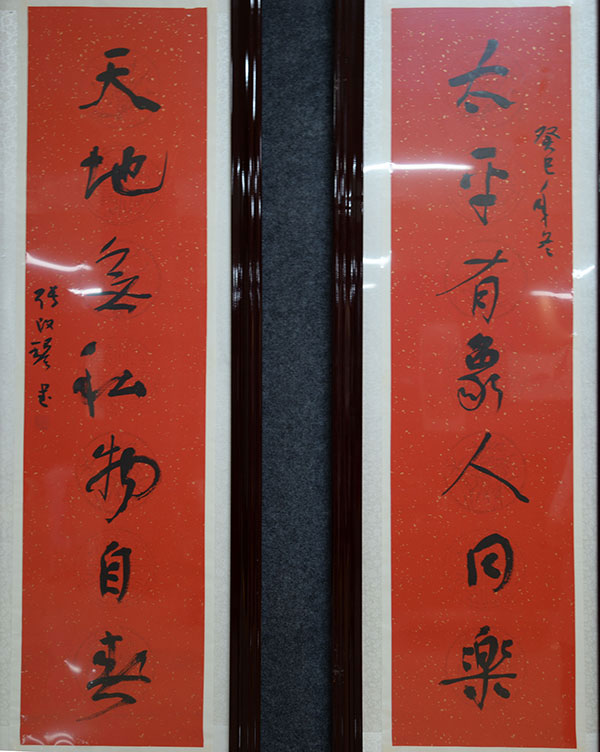 太平有象人同樂
癸巳年冬
天地無私物自春
張改琴書